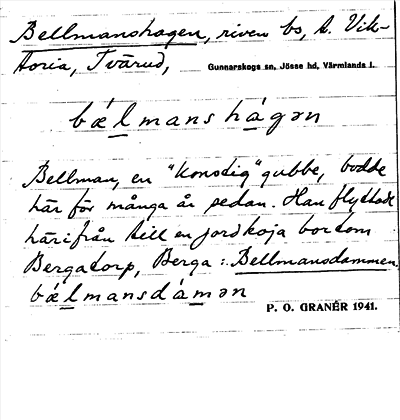 Bellmanshagen, riven bs, t. Vik-
toria, Tvärud, Gunnarskogs sn, Jösse hd, Värmlands l.
bælmanshágən
Bellman, en "konstig" gubbe, bodde
här för många år sedan. Han flyttade
härifrån till en jordkoja bortom
Bergatorp, Berga: Bellmansdammen.
bǽlmansdámən
P. O. GRANÉR 1941.